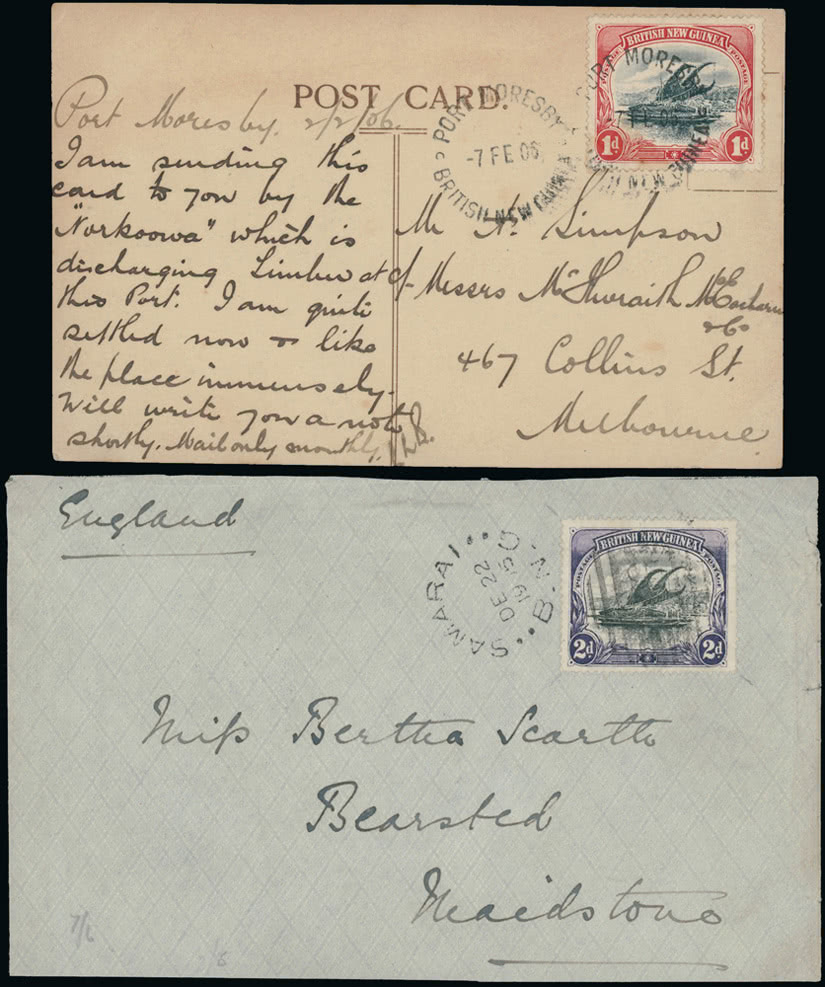 POST CARD.
BRITISH NEW GUINEA
POSTAGE POSTAGE
1d 1d
PORT MORESBY
-7 FE 06
BRITISH NEW GUINEA
PORT MORESBY
-7 FE 06
BRITISH NEW GUINEA
Port Moresby. 2/2/06.
I am sending this
card to you by the
"Norkoowa" which is
discharging Timber at
this Port. I am quite
settled now & like
the place immensely.
Will write you a note
shortly. Mail only monthly.
Mr A. Simpson
c/- Messrs McIlwraith McEacharn
& Co
467 Collins St.
Melbourne
England
SAMARAI
DE 22
1905
B.N.G.
BRITISH NEW GUINEA
POSTAGE POSTAGE
2d 2d
Miss Bertha Scarth
Bearsted
Maidstone
7/6